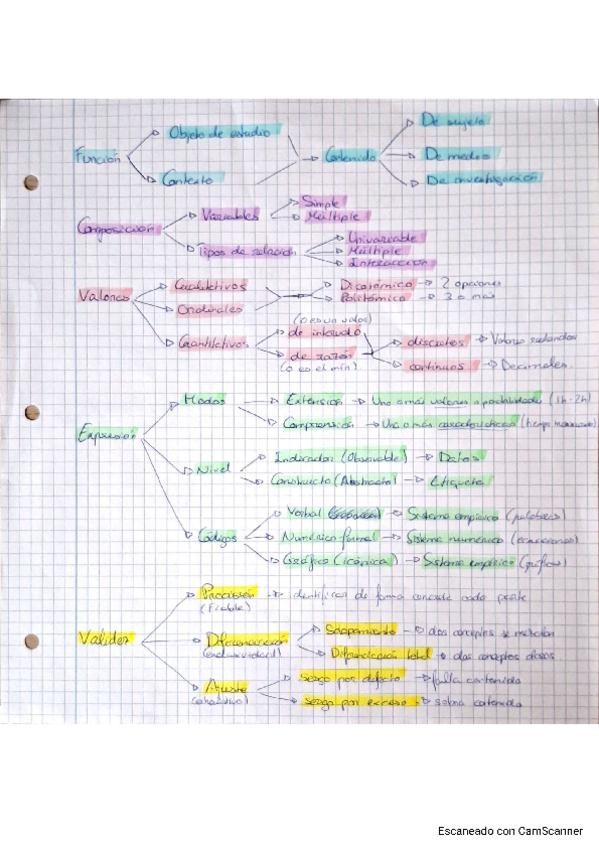 Función
Objeto de estudio
Contexto
Contenido
De sujeto
De medios
De investigación
Composición
Variables
Simple
Múltiple
Tipos de relación
Univariable
Múltiple
Interacción
Valores
Cualitativos
Ordinales
Dicotómico → 2 opciones
Politómico → 3 o más
Cuantitativos
(0 es un valor)
de intervalo
de razón
(0 es el mín)
discretos → Valores
continuos → Decimales
Expresión
Modos
Extensión → Uno o más valores o posibilidades (1h-2h)
Comprensión → Una o más características (tiempo
Nivel
Indicador (Observable) → Datos
Constructo (Abstracto) → Etiqueta
Códigos
Verbal → Sistema empírico (palabras)
Numérico formal → Sistema numérico (ecuaciones)
Gráfico (icónica) → Sistema empírico (gráficos)
Validez
Precisión
(Fiable)
identificar de forma concreta cada parte
Diferenciación
(exclusividad)
Solapamiento → dos conceptos se mezclan
Diferenciación total → dos conceptos claros
Ajuste
(exhaustivo)
sesgo por defecto → falta contenido
sesgo por exceso → sobra contenido
Escaneado con CamScanner